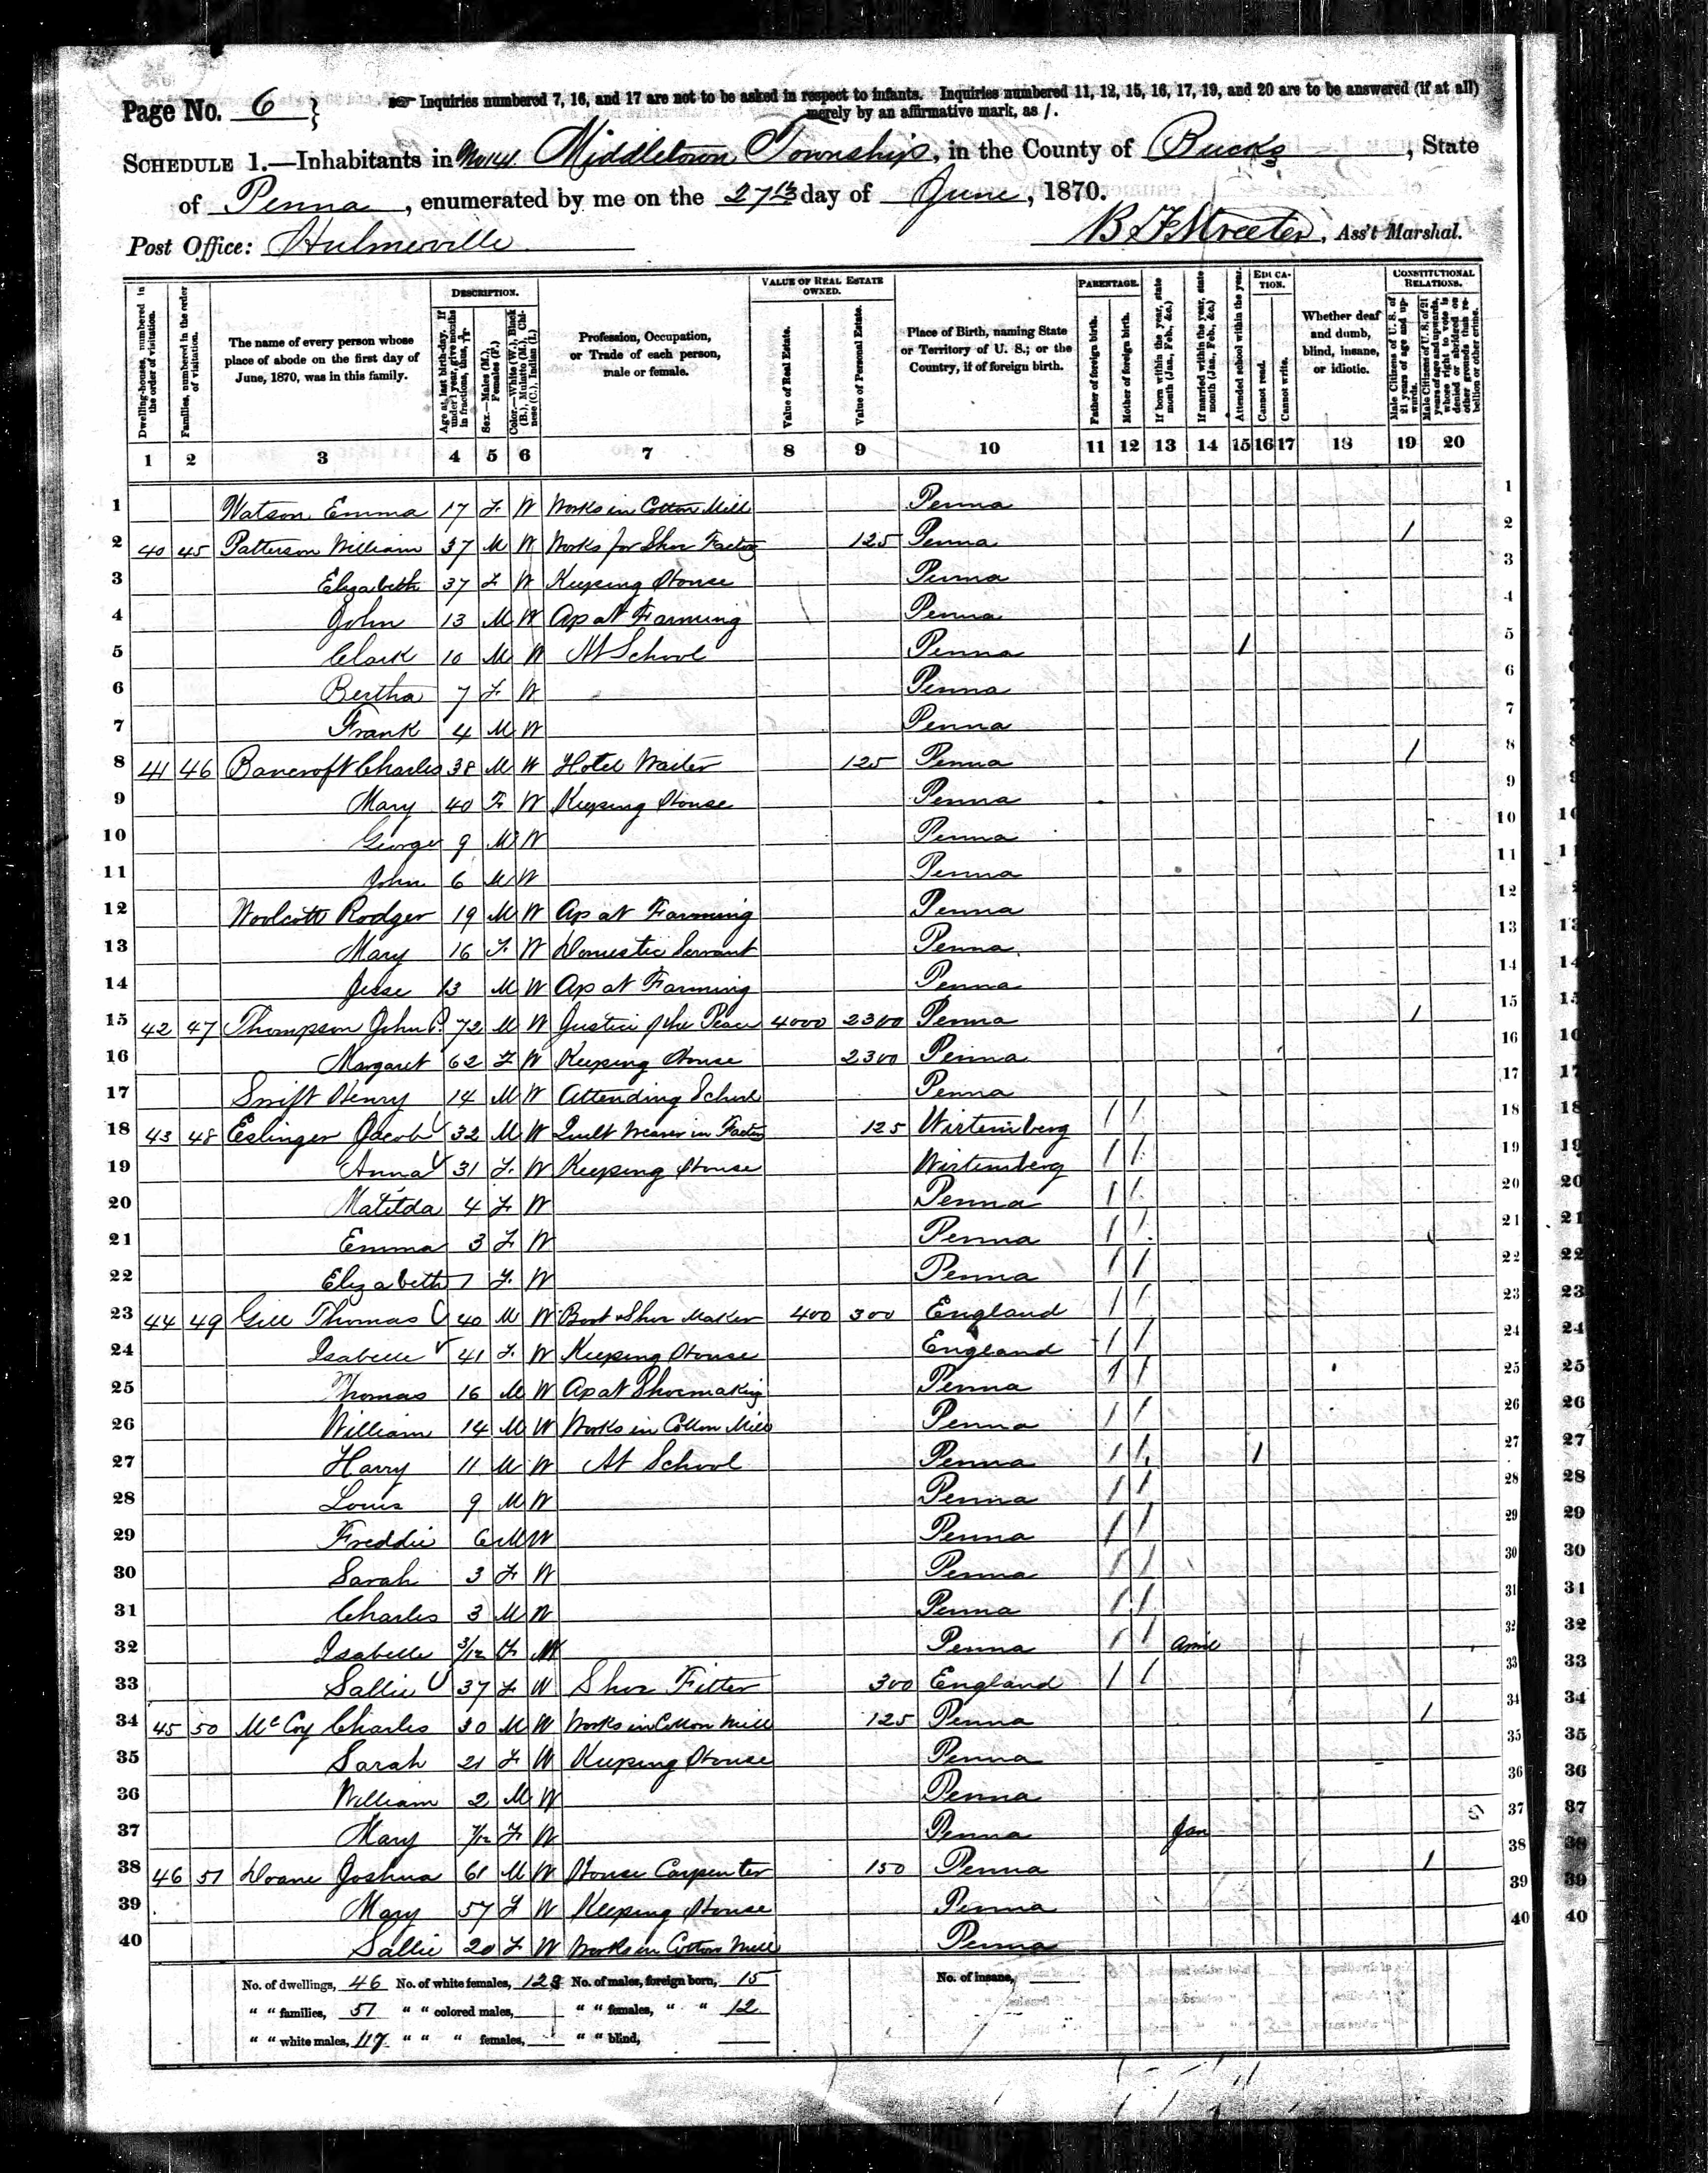 Page No. 6 } Inquiries numbered 7, 16, and 17 are not to be asked in respect to infants. Inquiries numbered 11, 12, 15, 16, 17, 19, and 20 are to be answered (if at all)
merely by an affirmative mark, as /.
SCHEDULE 1.—Inhabitants in Middletown Township, in the County of Bucks, State
of Penna, enumerated by me on the 27th day of June, 1870.
Post Office: Hulmeville B F Streeter, Ass't Marshal.
DESCRIPTION. VALUE OF REAL ESTATE OWNED. PARENTAGE. EDUCATION. CONSTITUTIONAL RELATIONS.
Dwelling-houses, numbered in the order of visitation.
Families, numbered in the order of visitation.
The name of every person whose place of abode on the first day of June, 1870, was in this family.
Age at last birth-day. If under 1 year, give months in fractions, thus, 3/12
Sex.—Males (M.), Females (F.)
Color.—White (W.), Black (B.), Mulatto (M.), Chinese (C.), Indian (I.)
Profession, Occupation, or Trade of each person, male or female.
Value of Real Estate.
Value of Personal Estate.
Place of Birth, naming State or Territory of U. S.; or the Country, if of foreign birth.
Father of foreign birth.
Mother of foreign birth.
If born within the year, state month (Jan., Feb., &c.)
If married within the year, state month (Jan., Feb., &c.)
Attended school within the year.
Cannot read.
Cannot write.
Whether deaf and dumb, blind, insane, or idiotic.
Male Citizens of U. S. of 21 years of age and upwards.
Male Citizens of U. S. of 21 years of age and upwards, whose right to vote is denied or abridged on other grounds than rebellion or other crime.
1 2 3 4 5 6 7 8 9 10 11 12 13 14 15 16 17 18 19 20
1 Watson Emma 17 F W Works in Cotton Mill Penna 1
2 40 45 Patterson William 37 M W Works for Shoe Factory 125 Penna / 2
3 Elizabeth 37 F W Keeping House Penna 3
4 John 13 M W Ap at Farming Penna 4
5 Clark 10 M W At School Penna / 5
6 Bertha 7 F W Penna 6
7 Frank 4 M W Penna 7
8 41 46 Bancroft Charles 38 M W Hotel Waiter 125 Penna / 8
9 Mary 40 F W Keeping House Penna 9
10 George 9 M W Penna 10
11 John 6 M W Penna 11
12 Woolcott Rodger 19 M W Ap at Farming Penna 12
13 Mary 16 F W Domestic Servant Penna 13
14 Jesse 13 M W Ap at Farming Penna 14
15 42 47 Thompson John P. 72 M W Justice of the Peace 4000 2300 Penna / 15
16 Margaret 62 F W Keeping House 2300 Penna 16
17 Swift Henry 14 M W Attending School Penna 17
18 43 48 Eslinger Jacob 32 M W Quilt Weaver in Factory 125 Wirtemberg / / 18
19 Anna 31 F W Keeping House Wirtemberg / / 19
20 Matilda 4 F W Penna / / 20
21 Emma 3 F W Penna / / 21
22 Elizabeth 1 F W Penna / / 22
23 44 49 Gill Thomas 40 M W Boot & Shoe Maker 400 300 England / / 23
24 Isabelle 41 F W Keeping House England / / 24
25 Thomas 16 M W Ap at Shoemaking Penna / / 25
26 William 14 M W Works in Cotton Mill Penna / / 26
27 Harry 11 M W At School Penna / / / 27
28 Louis 9 M W Penna / / 28
29 Freddie 6 M W Penna / / 29
30 Sarah 3 F W Penna / / 30
31 Charles 3 M W Penna / / 31
32 Isabelle 3/12 F W Penna / / April 32
33 Sallie 37 F W Shoe Fitter 300 England / / 33
34 45 50 McCoy Charles 30 M W Works in Cotton Mill 125 Penna / 34
35 Sarah 21 F W Keeping House Penna 35
36 William 2 M W Penna 36
37 Mary F W Penna Jan 37
38 46 51 Doane Joshua 61 M W House Carpenter 150 Penna / 38
39 Mary 57 F W Keeping House Penna 39
40 Sallie 20 F W Works in Cotton Mill Penna 40
No. of dwellings, 46 No. of white females, 123 No. of males, foreign born, 15 No. of insane,
" " families, 51 " " colored males, " " females, " " 12
" " white males, 117 " " " females, " " blind,